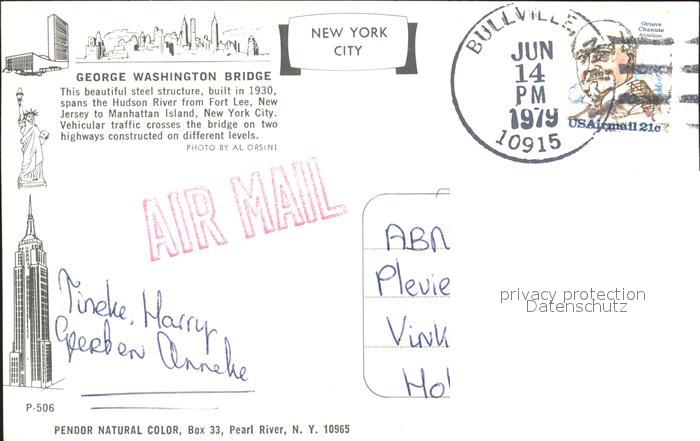 NEW YORK
CITY
BULLVILLE, N
JUN
14
PM
1979
10915
Octave
Chanute
Aviation
USAirmail 21c
GEORGE WASHINGTON BRIDGE
This beautiful steel structure, built in 1930,
spans the Hudson River from Fort Lee, New
Jersey to Manhattan Island, New York City.
Vehicular traffic crosses the bridge on two
highways constructed on different levels.
PHOTO BY AL ORSINI
AIR MAIL
ABN
Plevie
Vink
Hol
privacy protection
Datenschutz
Tineke, Harry
Gerben Anneke
P-506
PENDOR NATURAL COLOR, Box 33, Pearl River, N. Y. 10965